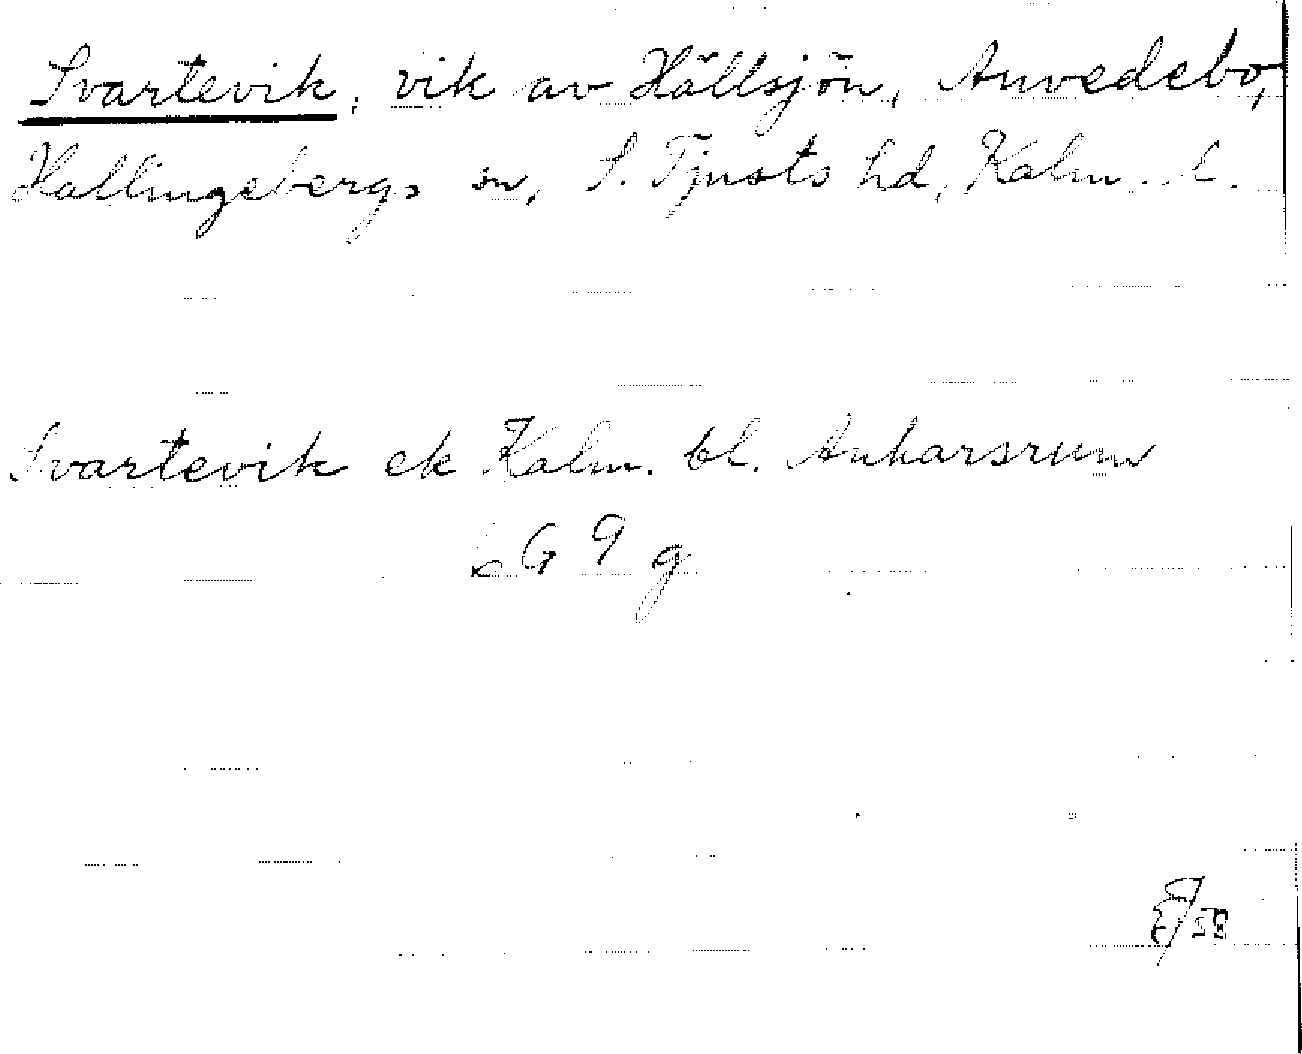 Svartevik, vik av Hällsjön, Anvedebo,
Hallingebergs sn, S. Tjusts hd, Kalm. l.
Svartevik ek Kalm. bl. Ankarsrum
6 G 9 g
58